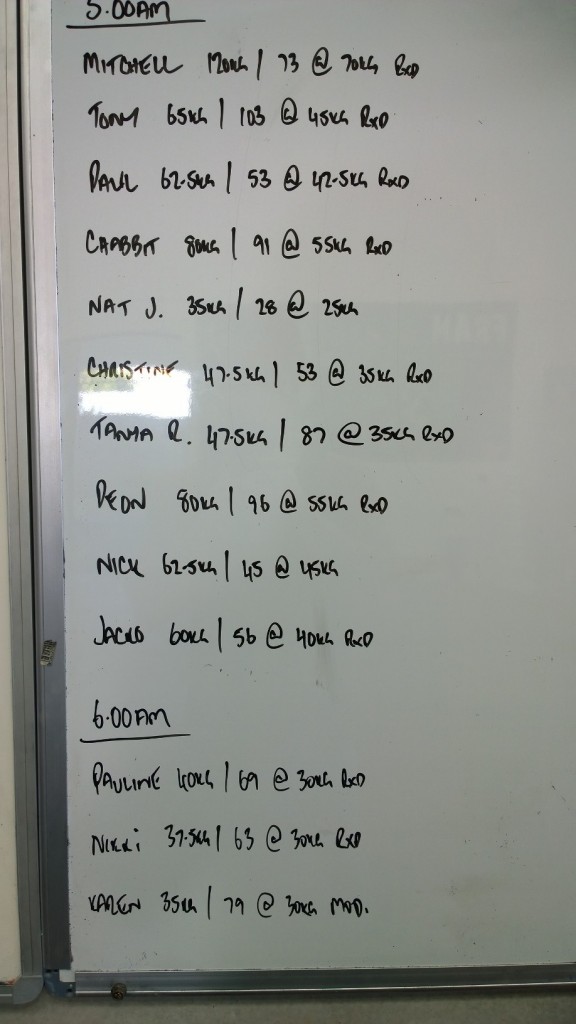 5.00AM
MITCHELL 120KG | 73 @ 70KG RXD
TONY 65KG | 103 @ 45KG RXD
PAUL 62.5KG | 53 @ 42.5KG RXD
CRABBIT 80KG | 91 @ 55KG RXD
NAT J. 35KG | 28 @ 25KG
CHRISTINE 47.5KG | 53 @ 35KG RXD
TANYA R. 47.5KG | 87 @ 35KG RXD
DEON 80KG | 96 @ 55KG RXD
NICK 62.5KG | 45 @ 45KG
60KG | 56 @ 40KG RXD
6.00AM
PAULINE 40KG | 69 @ 30KG RXD
NIKKi 37.5KG | 63 @ 30KG RXD
KAREN 35KG | 79 @ 30KG MOD.